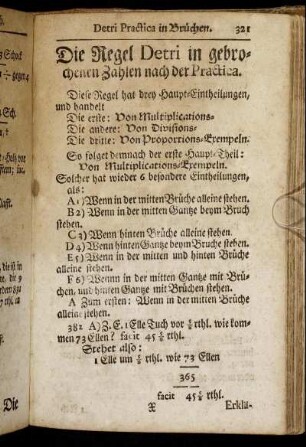 Detri Practica in Brüchen. 321
Die Regel Detri in gebro-
chenen Zahlen nach der Practica.
Diese Regel hat drey Haupt-Eintheilungen,
und handelt
Die erste: Von Multiplications-
Die andere: Von Divisions-
Die dritte: Von Proportions-Exempeln.
So folget demnach der erste Haupt-Theil:
Von Multiplications-Exempeln.
Solcher hat wieder 6 besondere Eintheilungen,
als:
A 1) Wenn in der mitten Brüche alleine stehen.
B 2) Wenn in der mitten Gantze beym Bruch
stehen.
C 3) Wenn hinten Brüche alleine stehen.
D 4) Wenn hinten Gantze beym Bruche stehen.
E 5) Wenn in der mitten und hinten Brüche
alleine stehen.
F 6) Wenn in der mitten Gantze mit Brü-
chen, und hinten Gantze mit Brüchen stehen.
A Zum ersten: Wenn in der mitten Brüche
alleine stehen.
382 A) Z. E. 1 Elle Tuch vor ⅝ rthl. wie kom-
men 73 Ellen? facit 45 ⅝ rthl.
Stehet also:
1 Elle um ⅝ rthl. wie 73 Ellen
365
facit 45 ⅝ rthl.
X Erklä-
Die